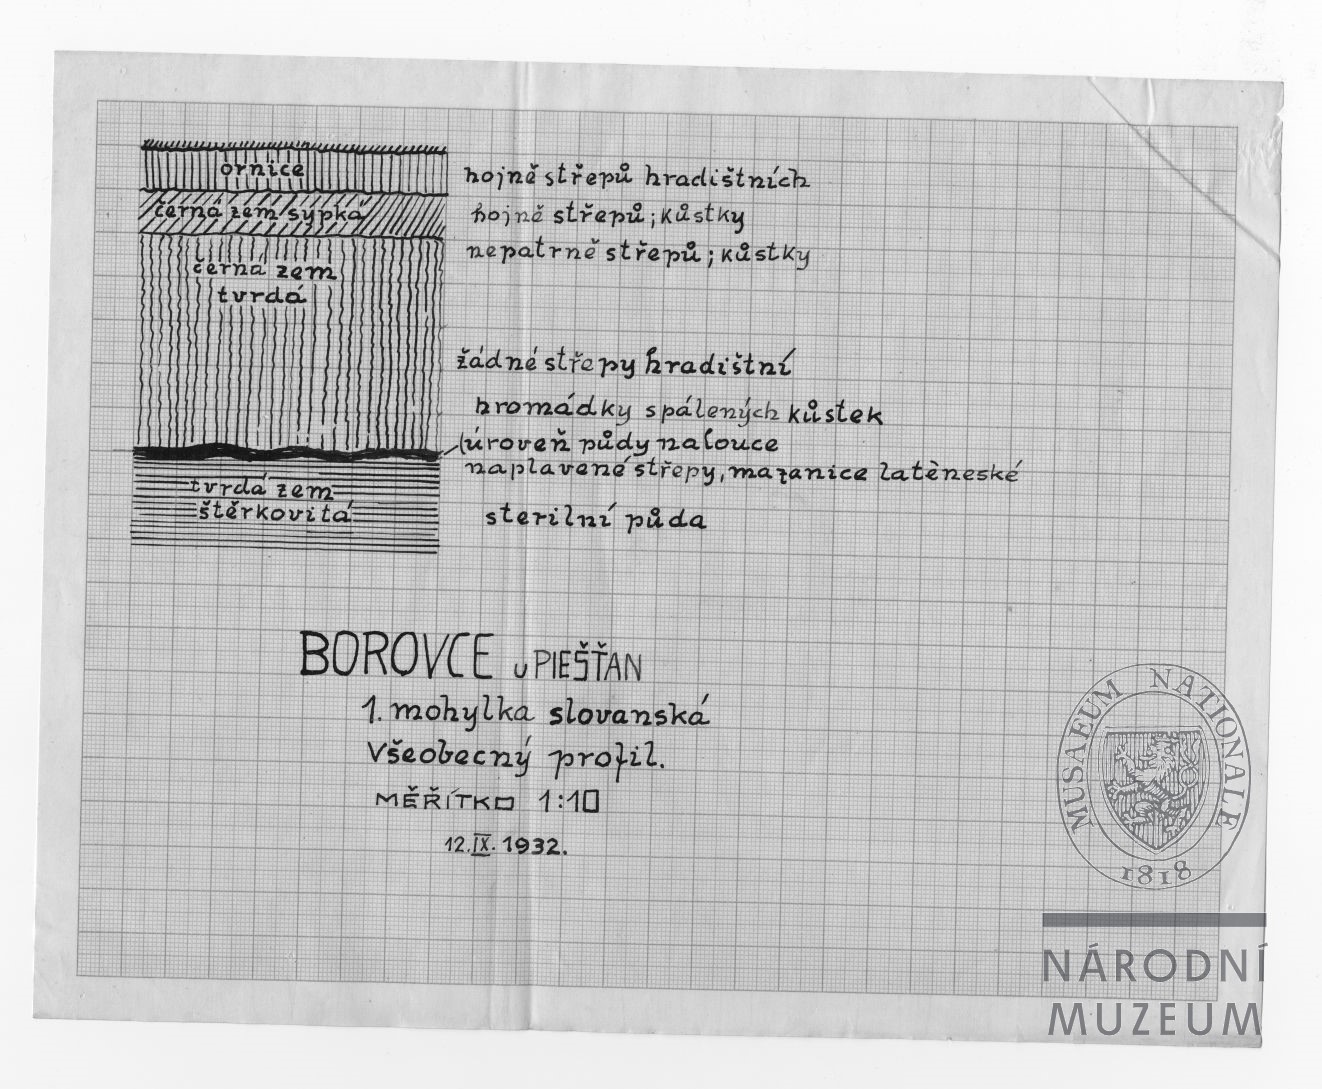 ornice
hojně střepů hradištních
černá zem sypká
hojně střepů; kůstky
nepatrně střepů; kůstky
černá zem
tvrdá
žádné střepy hradištní
hromádky spálených kůstek
(úroveň půdy na louce
naplavené střepy, mazanice latèneské
tvrdá zem
štěrkovitá
sterilní půda
BOROVCE u PIEŠŤAN
1. mohylka slovanská
Všeobecný profil.
MĚŘÍTKO 1:10
12. IX. 1932.
MUSAEUM NATIONALE
1818
NÁRODNÍ
MUZEUM